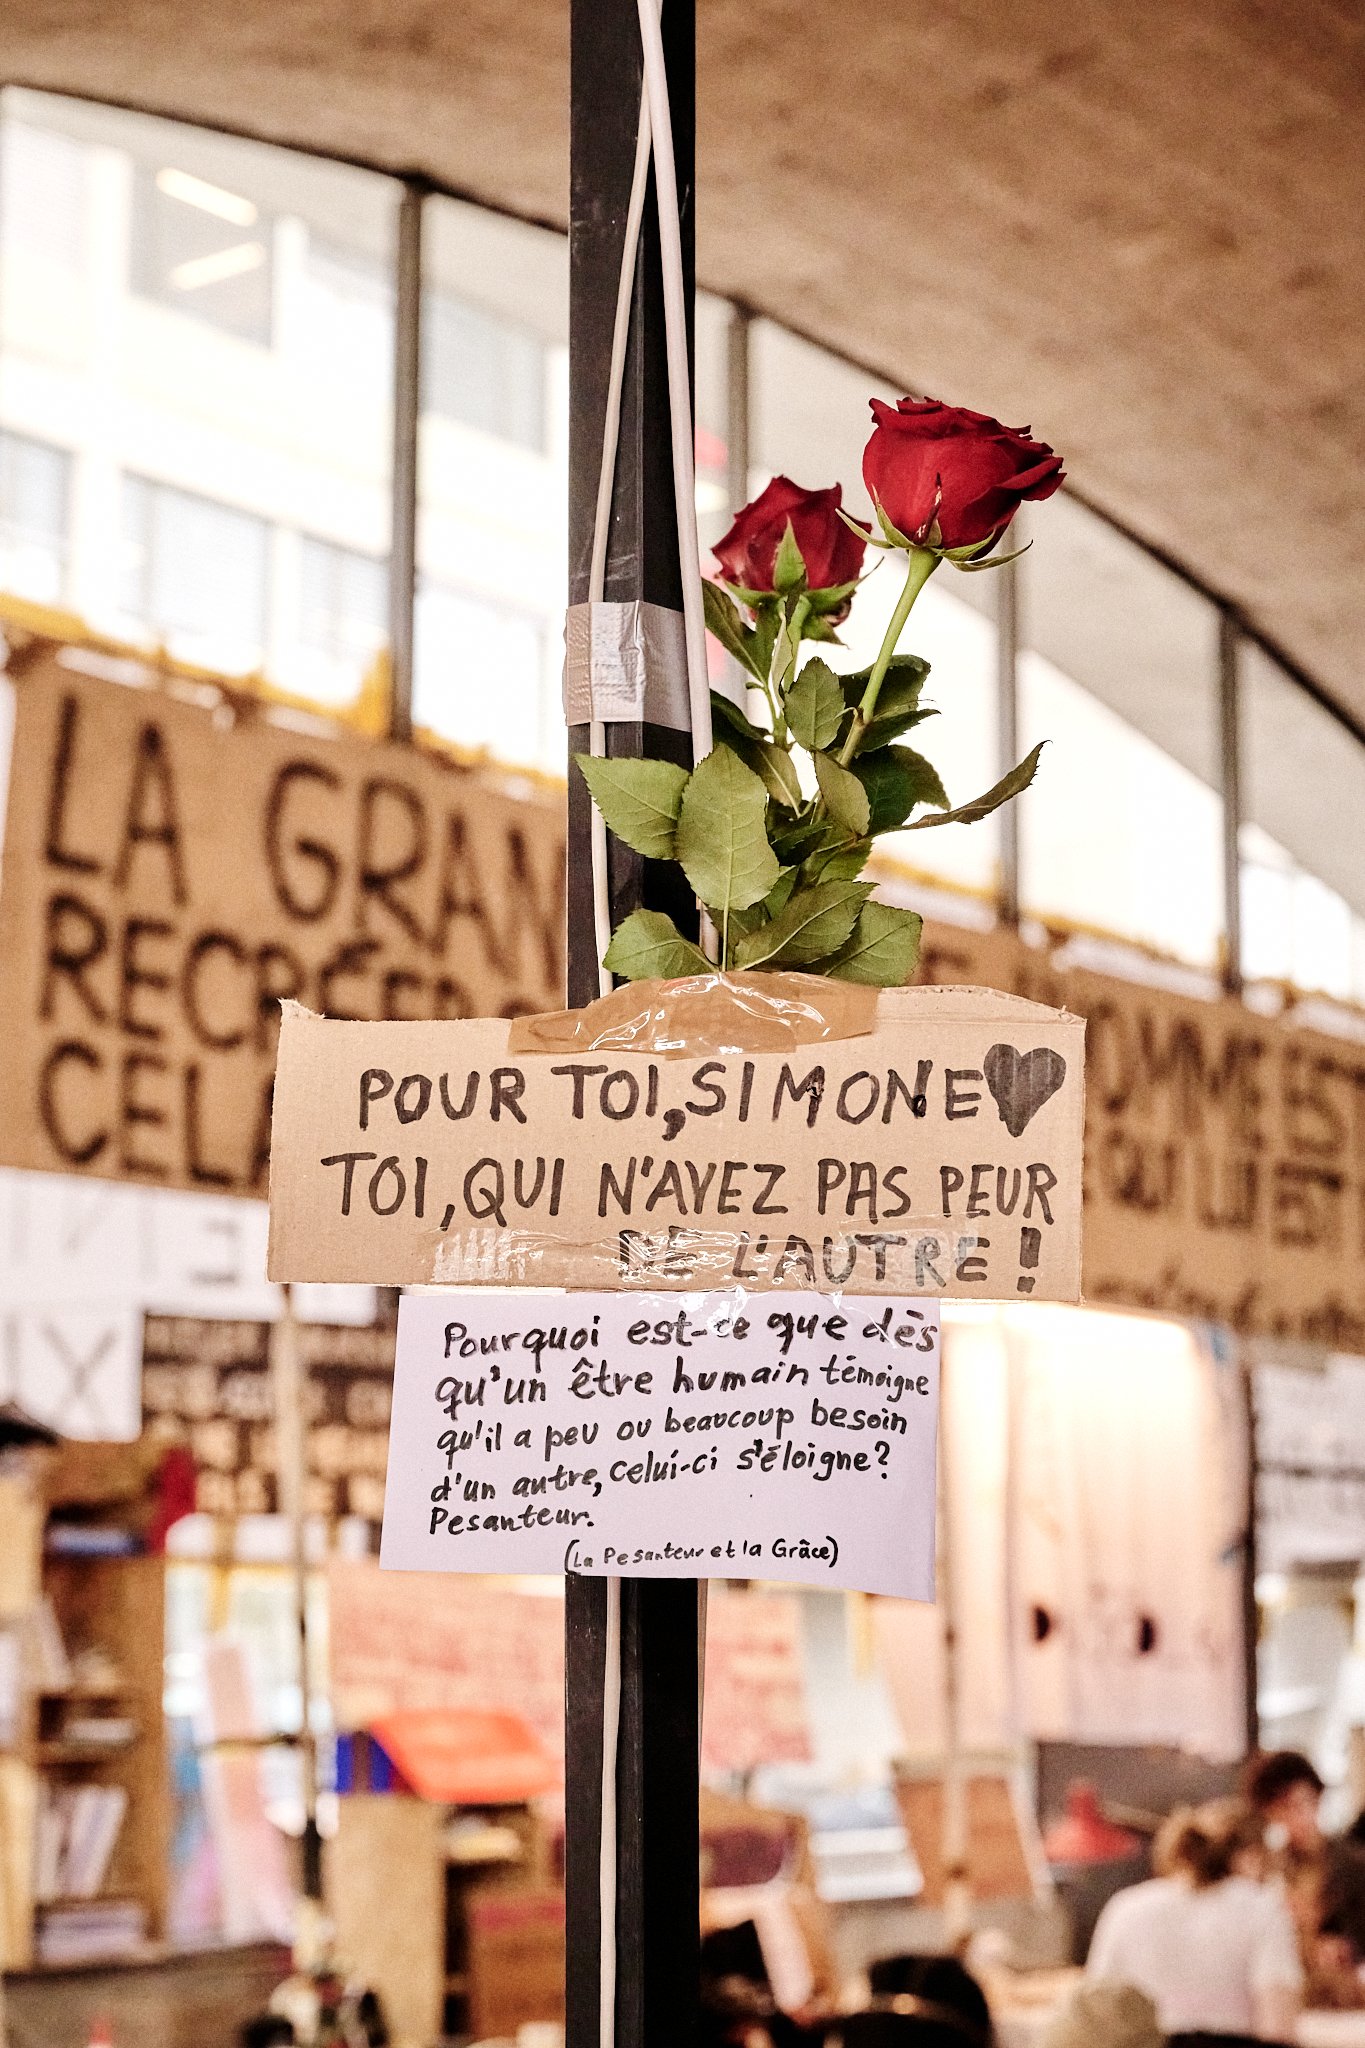 LA GRAN
RECRÉER
CELA
POUR TOI, SIMONE
TOI, QUI N'AVEZ PAS PEUR
DE L'AUTRE !
Pourquoi est-ce que dès
qu'un être humain témoigne
qu'il a peu ou beaucoup besoin
d'un autre, celui-ci s'éloigne?
Pesanteur.
(La Pesanteur et la Grâce)
HOMME EST
QUI LUI EST